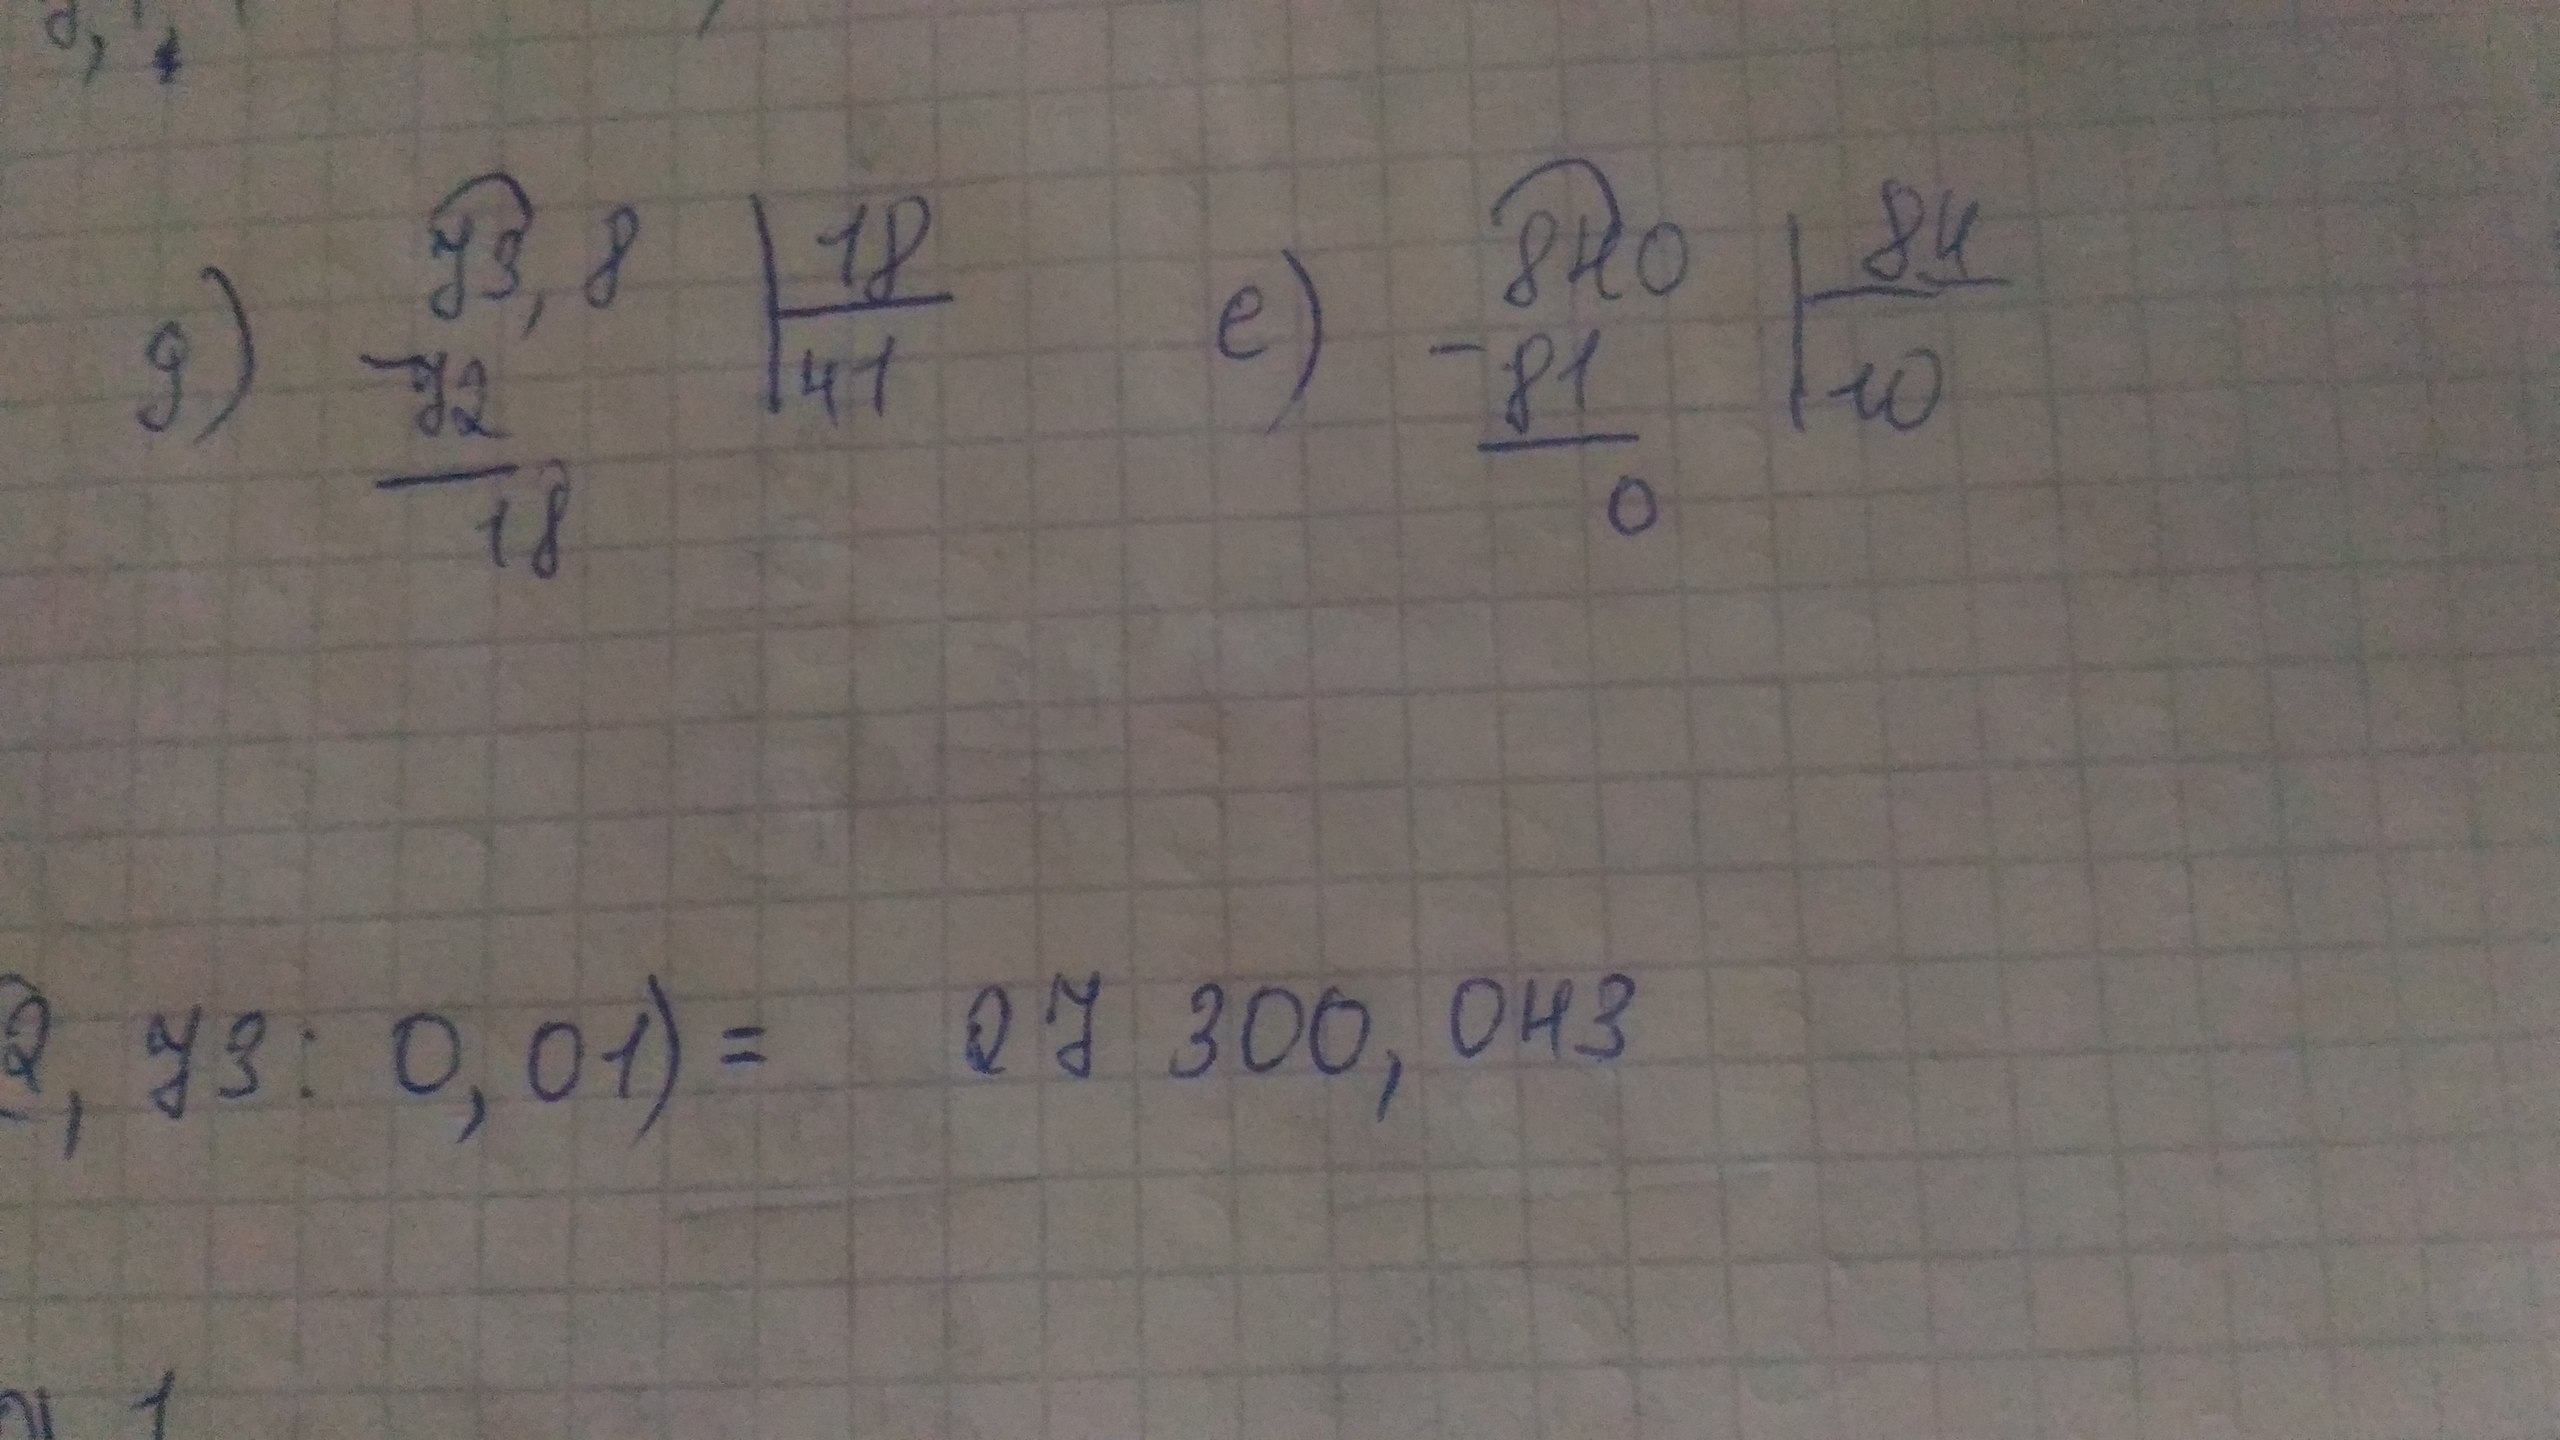 д) 73,8 | 18 е) 840 | 84
- 72 | 41 - 81 | 10
18 0
2,73: 0,01) = 27 300,043